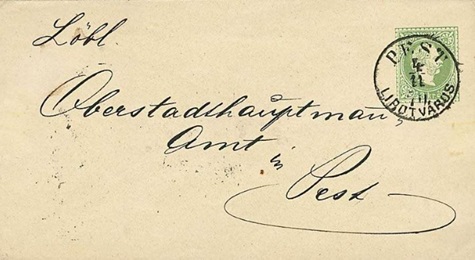 Löbl.
Oberstadthauptmann,
Amt
in
Pest
PEST
LIPOTVÁROS